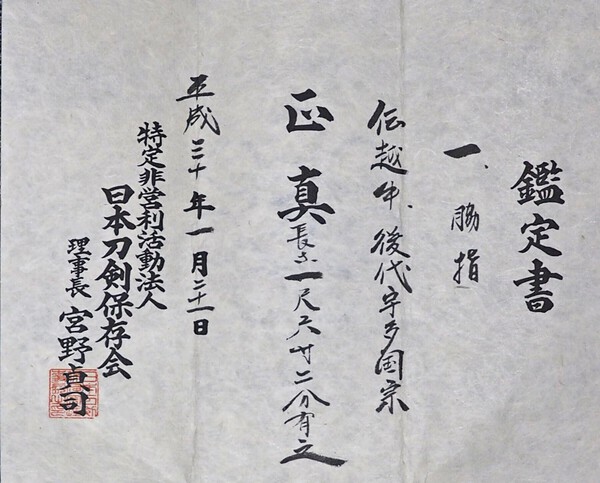 鑑定書
一、脇指
伝越中、後代宇多国宗
正真
長さ一尺六寸二分有之
平成三十年一月二十一日
特定非営利活動法人
日本刀剣保存会
理事長 宮野貞司